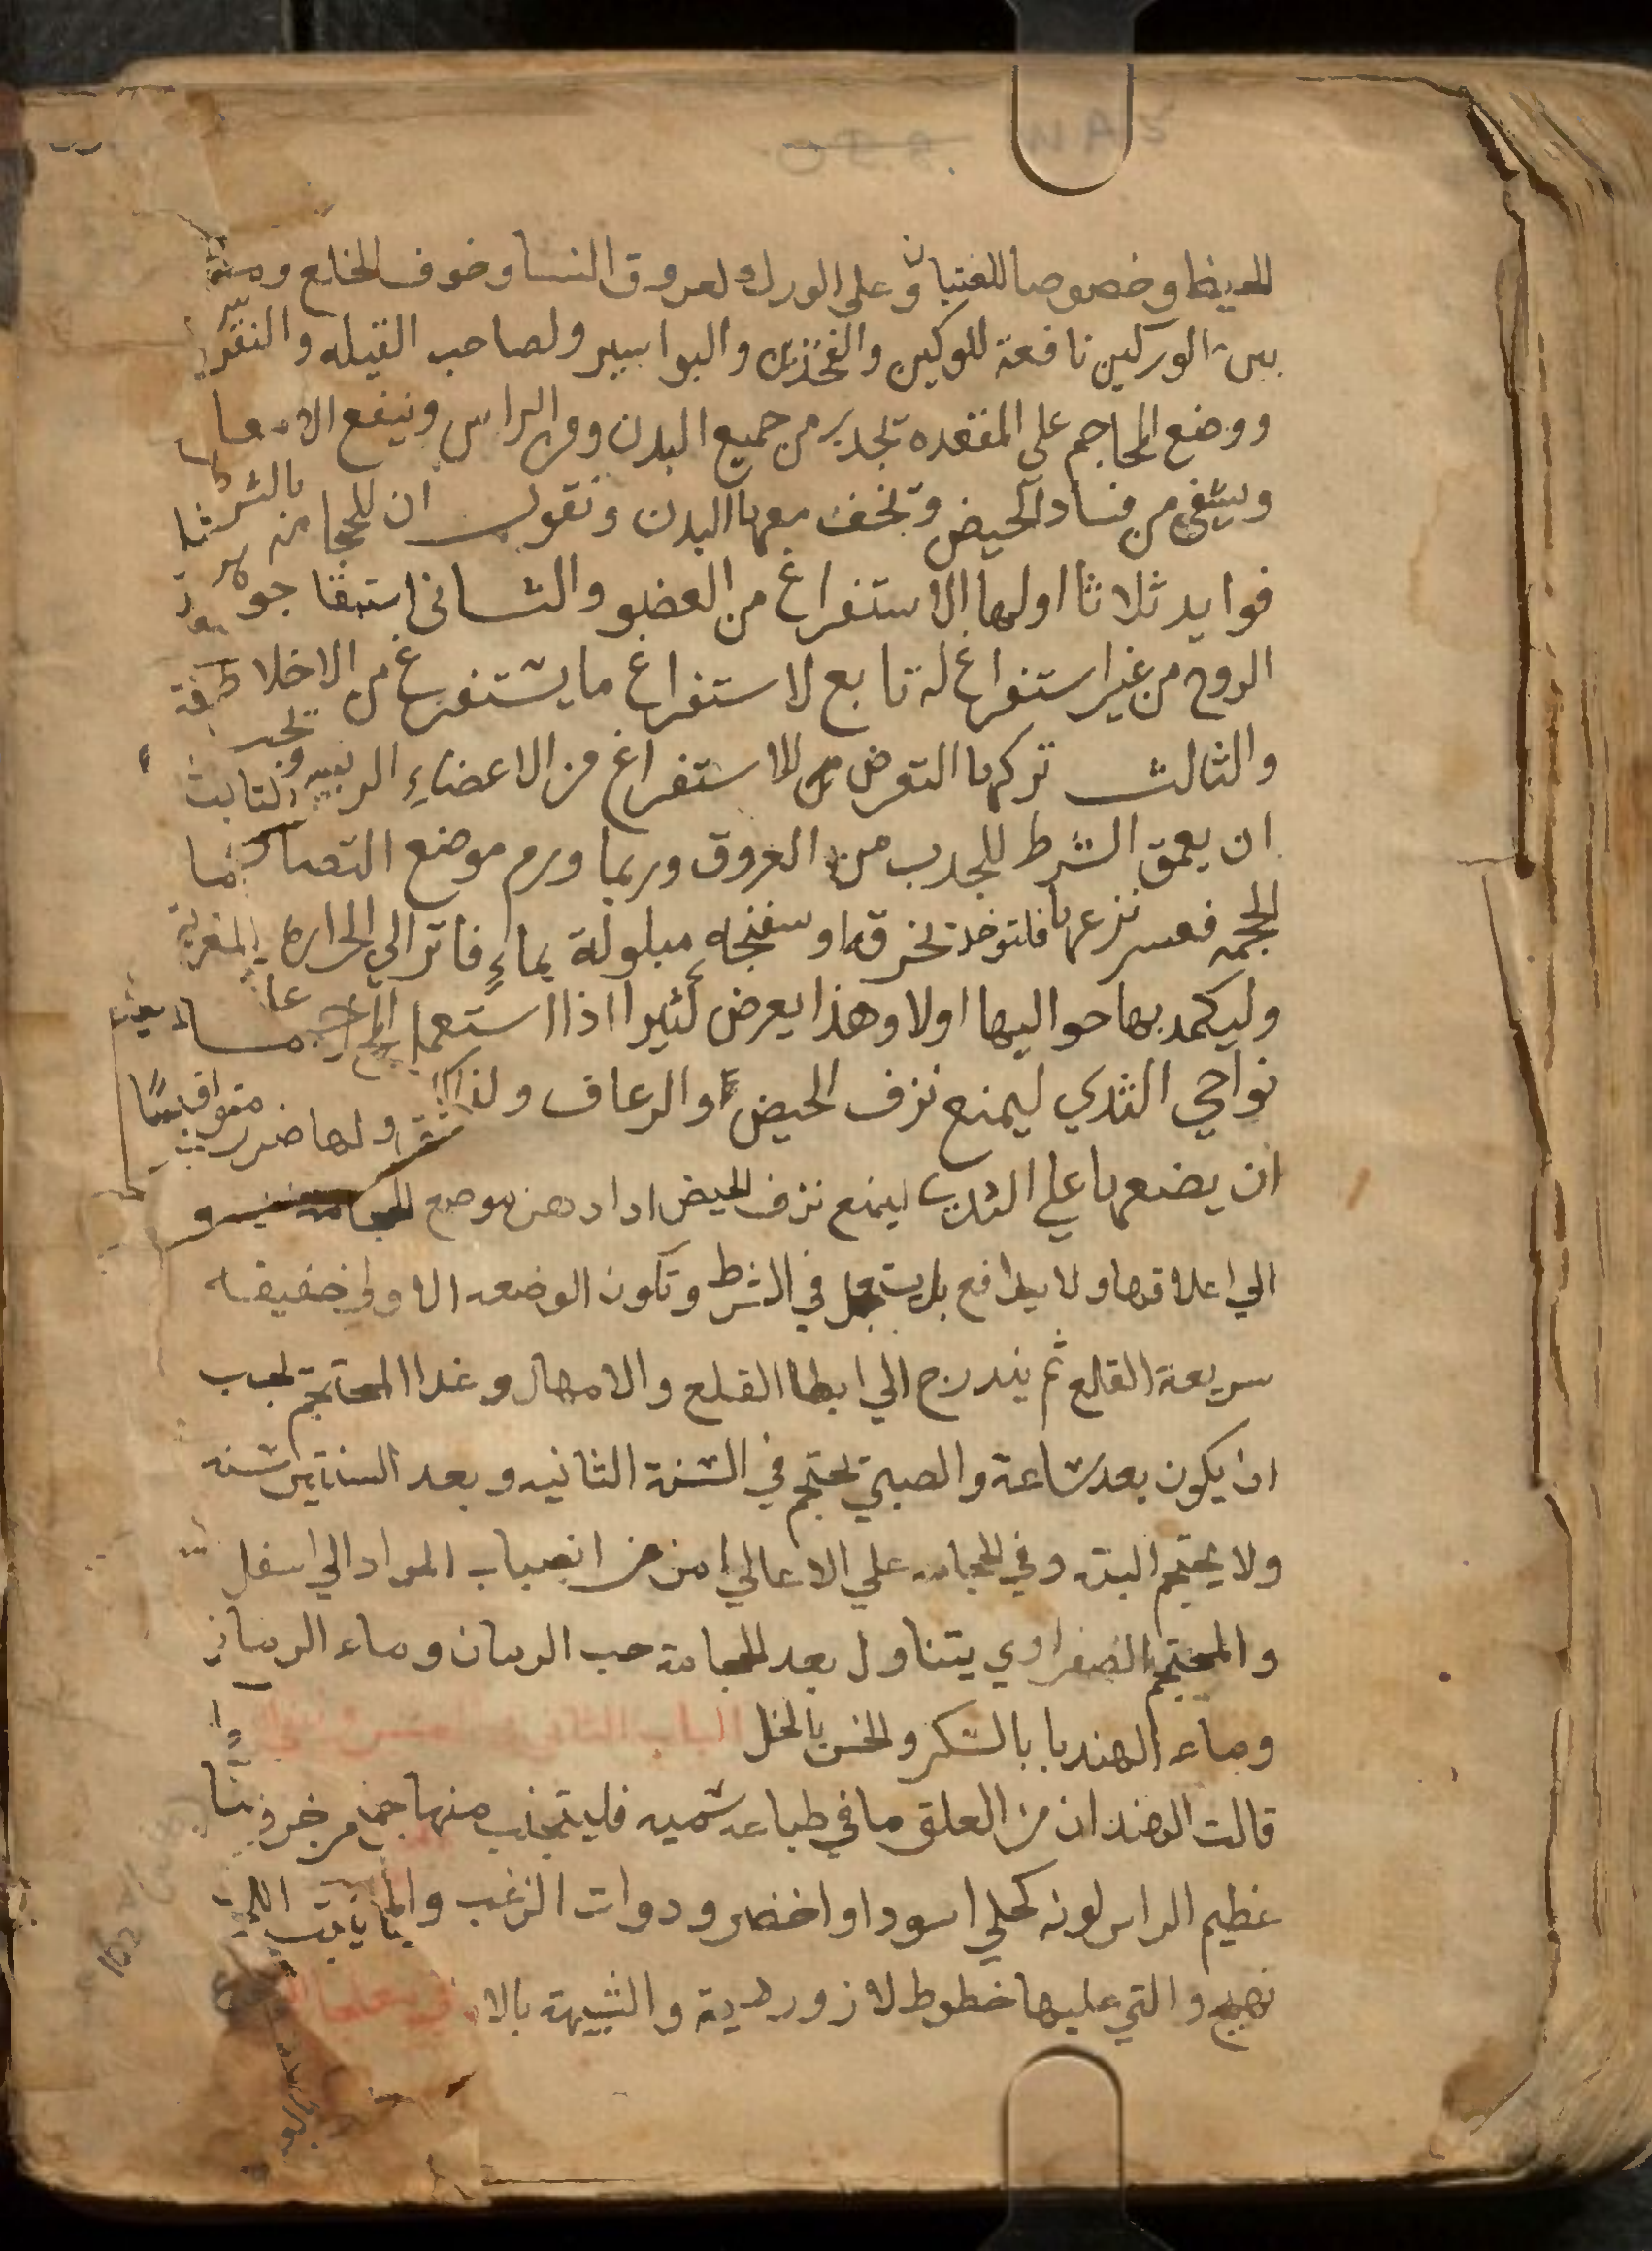 وخصوصا للفتيان وعلى الورك لعروق النسا وخوف الخلع
بين الوركين نافعة للوركين والفخذين والبواسير ولصاحب القيله والنقرس
ووضع المحاجم علي المقعده تجذب من جميع البدن ومن الراس وينفع الامعا
ويشفي من فساد الحيض وتخف معها البدن ونقول ان للحجامة بالشرط
فوايد ثلاثا اولها الاستفراغ من العضو والثاني استبقا جوهر
الروح من غير استفراغ له تابع لاستفراغ ما يستفرغ من الاخلاط
والثالث تركها التعرض للاستفراغ من الاعضاءِ الرييسه ويجب
ان يعمق الشرط للجدب من العروق وربما ورم موضع التصاق
المحجمه فعسر نزعها فلتوخد بخرق او سفنجه مبلولة بماءٍ فاتر الي الحراره
وليكمد بها حواليها اولا وهذا يعرض كثيرا اذا استعمل المحاجم علي
نواحي الثدي ليمنع نزف الحيض او الرعاف ولذلك
ان يضعها علي الثدي ليمنع نزف الحيض اذا دهن موضع الحجامة
الي اعلاقها ولا يدافع بل يستعجل في الشرط وتكون الوضعه الاولي خفيفه
سريعة القلع ثم يتدرج الي ابطا القلع والامهال وغدا المحتجم يجب
ان يكون بعد ساعة والصبي يحتجم في السنة الثانيه وبعد الستين سنه
ولا يحتجم البته وفي الحجامه علي الاعالي امن من انصباب المواد الي اسفل
والمحتجم الصفراوي يتناول بعد الحجامة حب الرمان وماء الرمان
وماء الهندبا بالسكر والخس بالخل الباب الثاني
قالت الهند ان من العلق ما في طباعه سميه فليتجنب منها جميع
عظيم الراس لونه كحلي اسود او اخضر ودوات الزغب
والتي عليها خطوط لازوردية والشبيهة